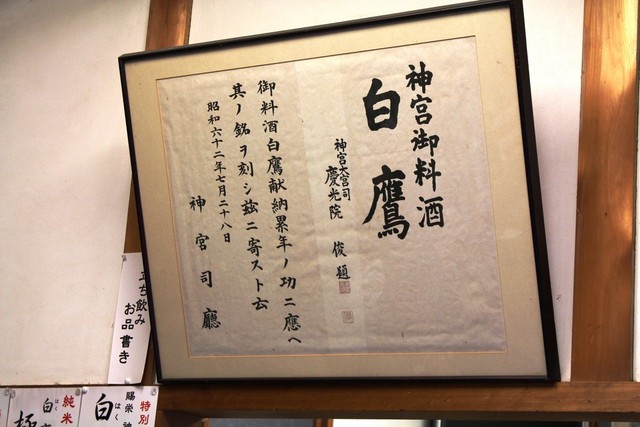 神宮御料酒
白鷹
神宮大宮司
慶光院 俊題
御料酒白鷹献納累年ノ功ニ應ヘ
其ノ銘ヲ刻シ茲ニ寄スト云
昭和六十二年七月二十八日
神宮司廳
立ち飲み
お品書き
特別
賜栄
白
はく
純米
白
はく
極